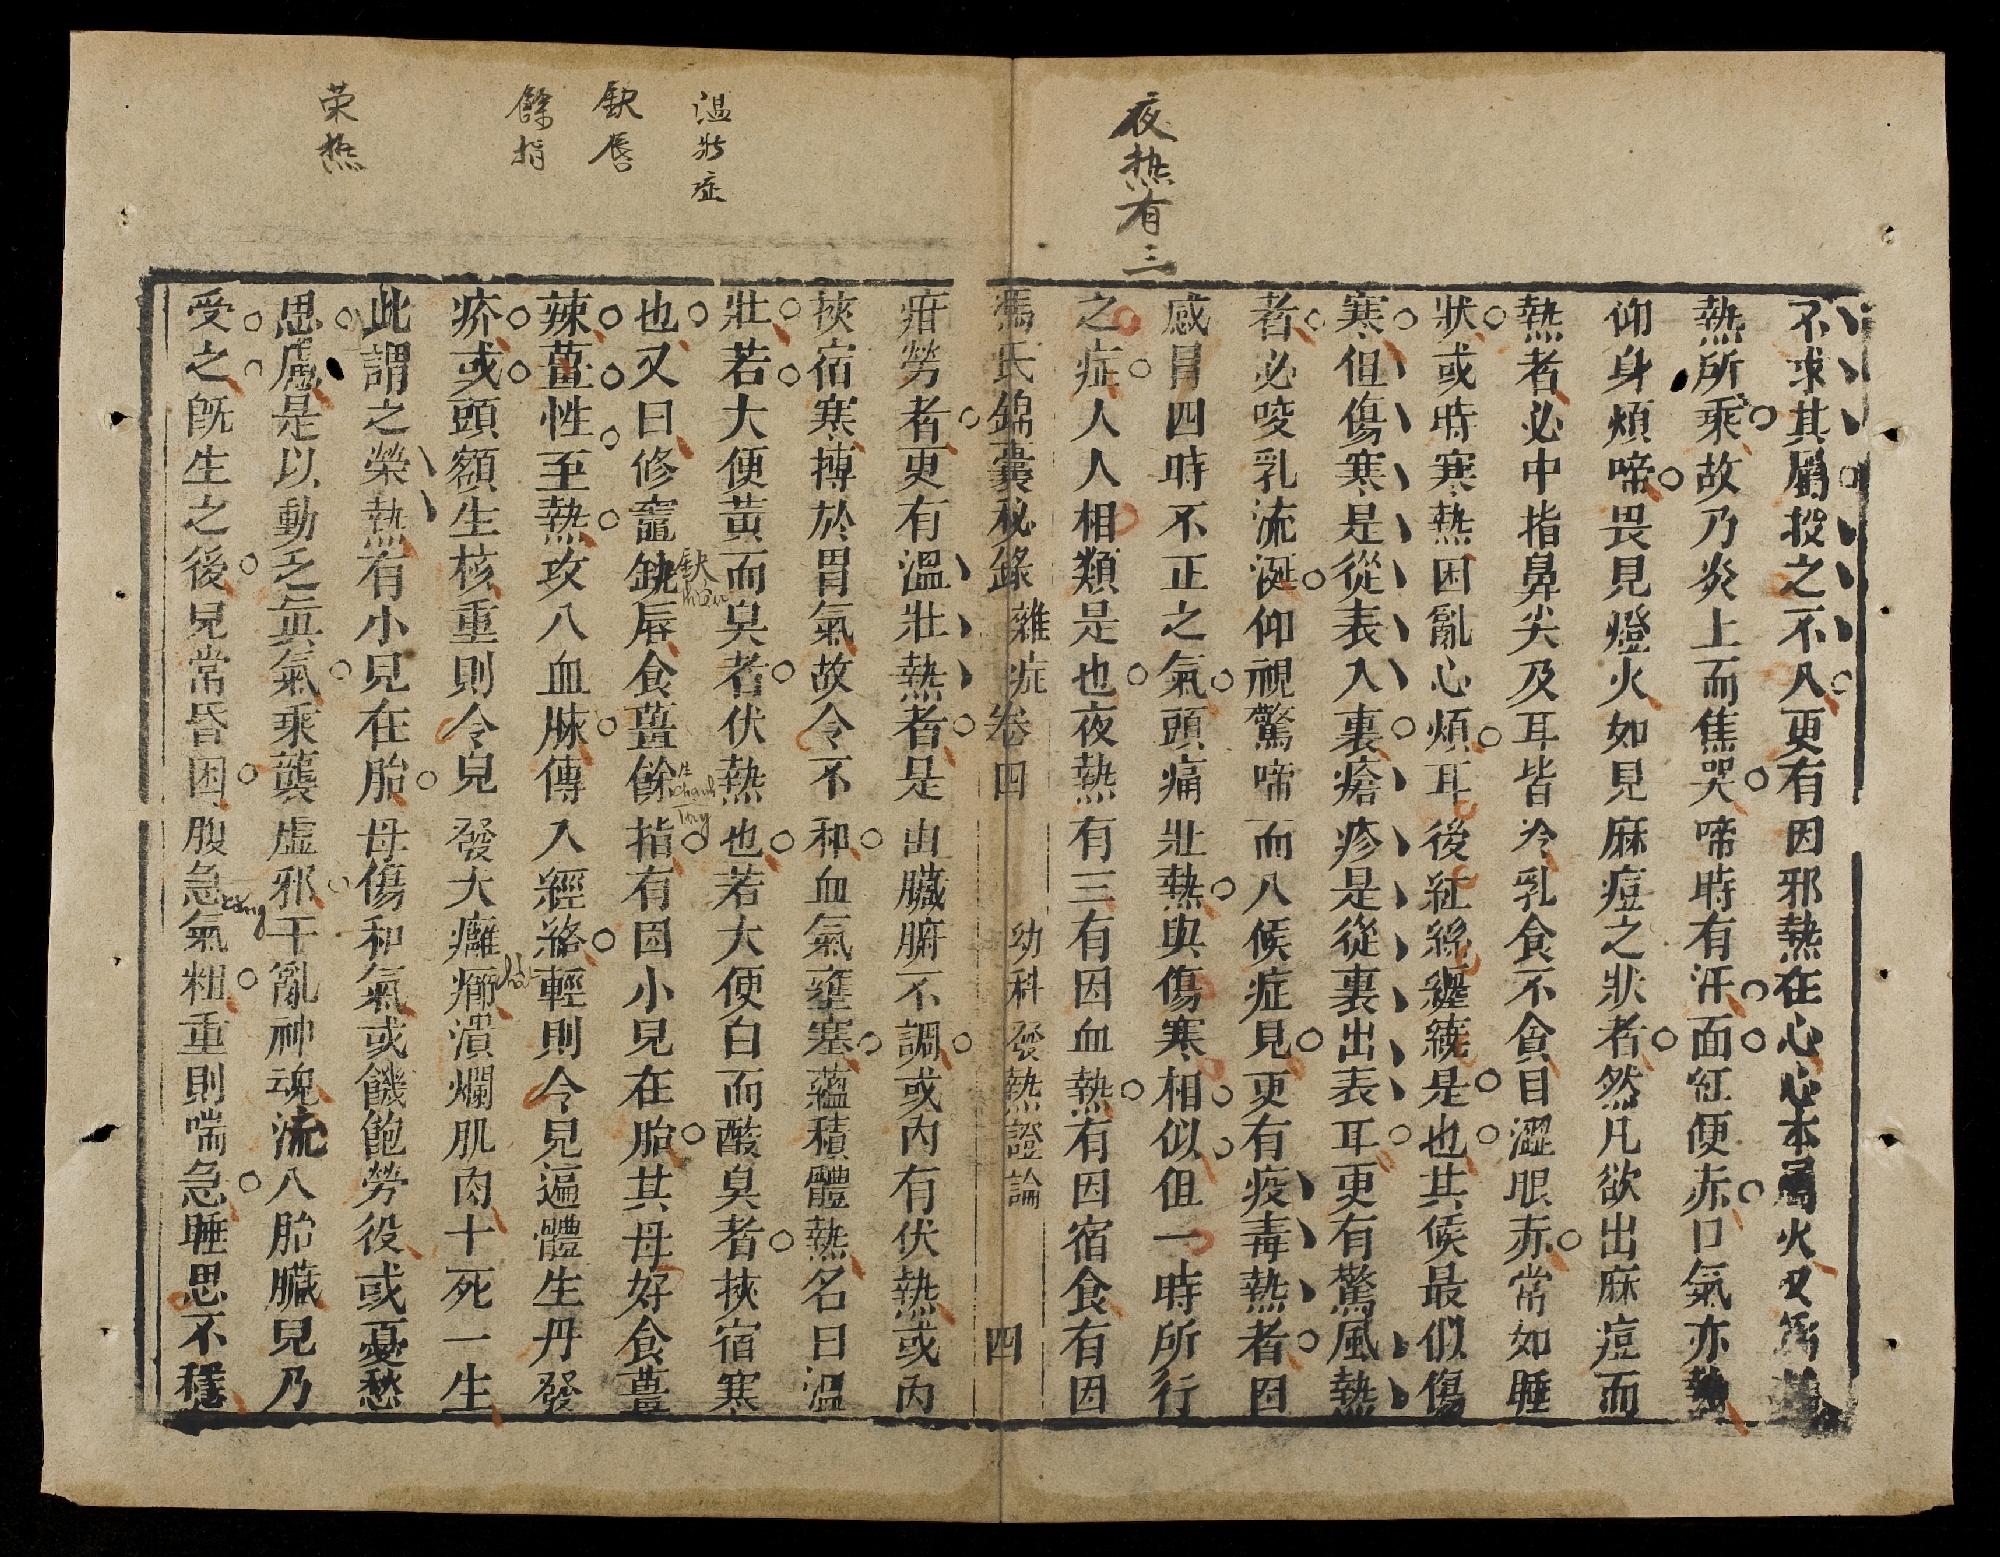 夜热有三
不求其屬投之不入更有因邪熱在心心本屬火又為
熱所乘故乃炎上而焦哭啼時有汗面紅便赤口氣亦熱
仰身煩啼畏見燈火如見麻痘之狀者然凡欲出麻痘而
熱者必中指鼻尖及耳皆冷乳食不貪目澀眼赤常如睡
狀或時寒熱困亂心煩耳後紅絲纏繞是也其候最似傷
寒但傷寒是從表入裏瘡疹是從裏出表耳更有驚風熱
者必咬乳流涎仰視驚啼而入候症見更有疫毒熱者因
感冒四時不正之氣頭痛壯熱與傷寒相似但一時所行
之症人人相類是也夜熱有三有因血熱有因宿食有因
馮氏錦囊秘錄 雜症卷四 幼科發熱證論 四
温壯症
缺唇
餘指
荣热
疳勞者更有溫壯熱者是由臟腑不調或內有伏熱或內
挾宿寒搏於胃氣故令不和血氣壅塞蘊積體熱名曰溫
壯若大便黃而臭者伏熱也若大便白而酸臭者挾宿寒
也又曰修竈缺唇食薑餘指有因小兒在胎其母好食薑
缺
sinh
chanh
Tay
辣薑性至熱攻入血脉傳入經絡輕則令兒遍體生丹發
疥或頭額生核重則令兒發大癰癤潰爛肌肉十死一生
此謂之榮熱有小兒在胎母傷和氣或饑飽勞役或憂愁
思慮是以動乏眞氣乘襲虛邪干亂神魂流入胎臟兒乃
受之旣生之後見常昏困腹急氣粗重則喘急睡思不穩